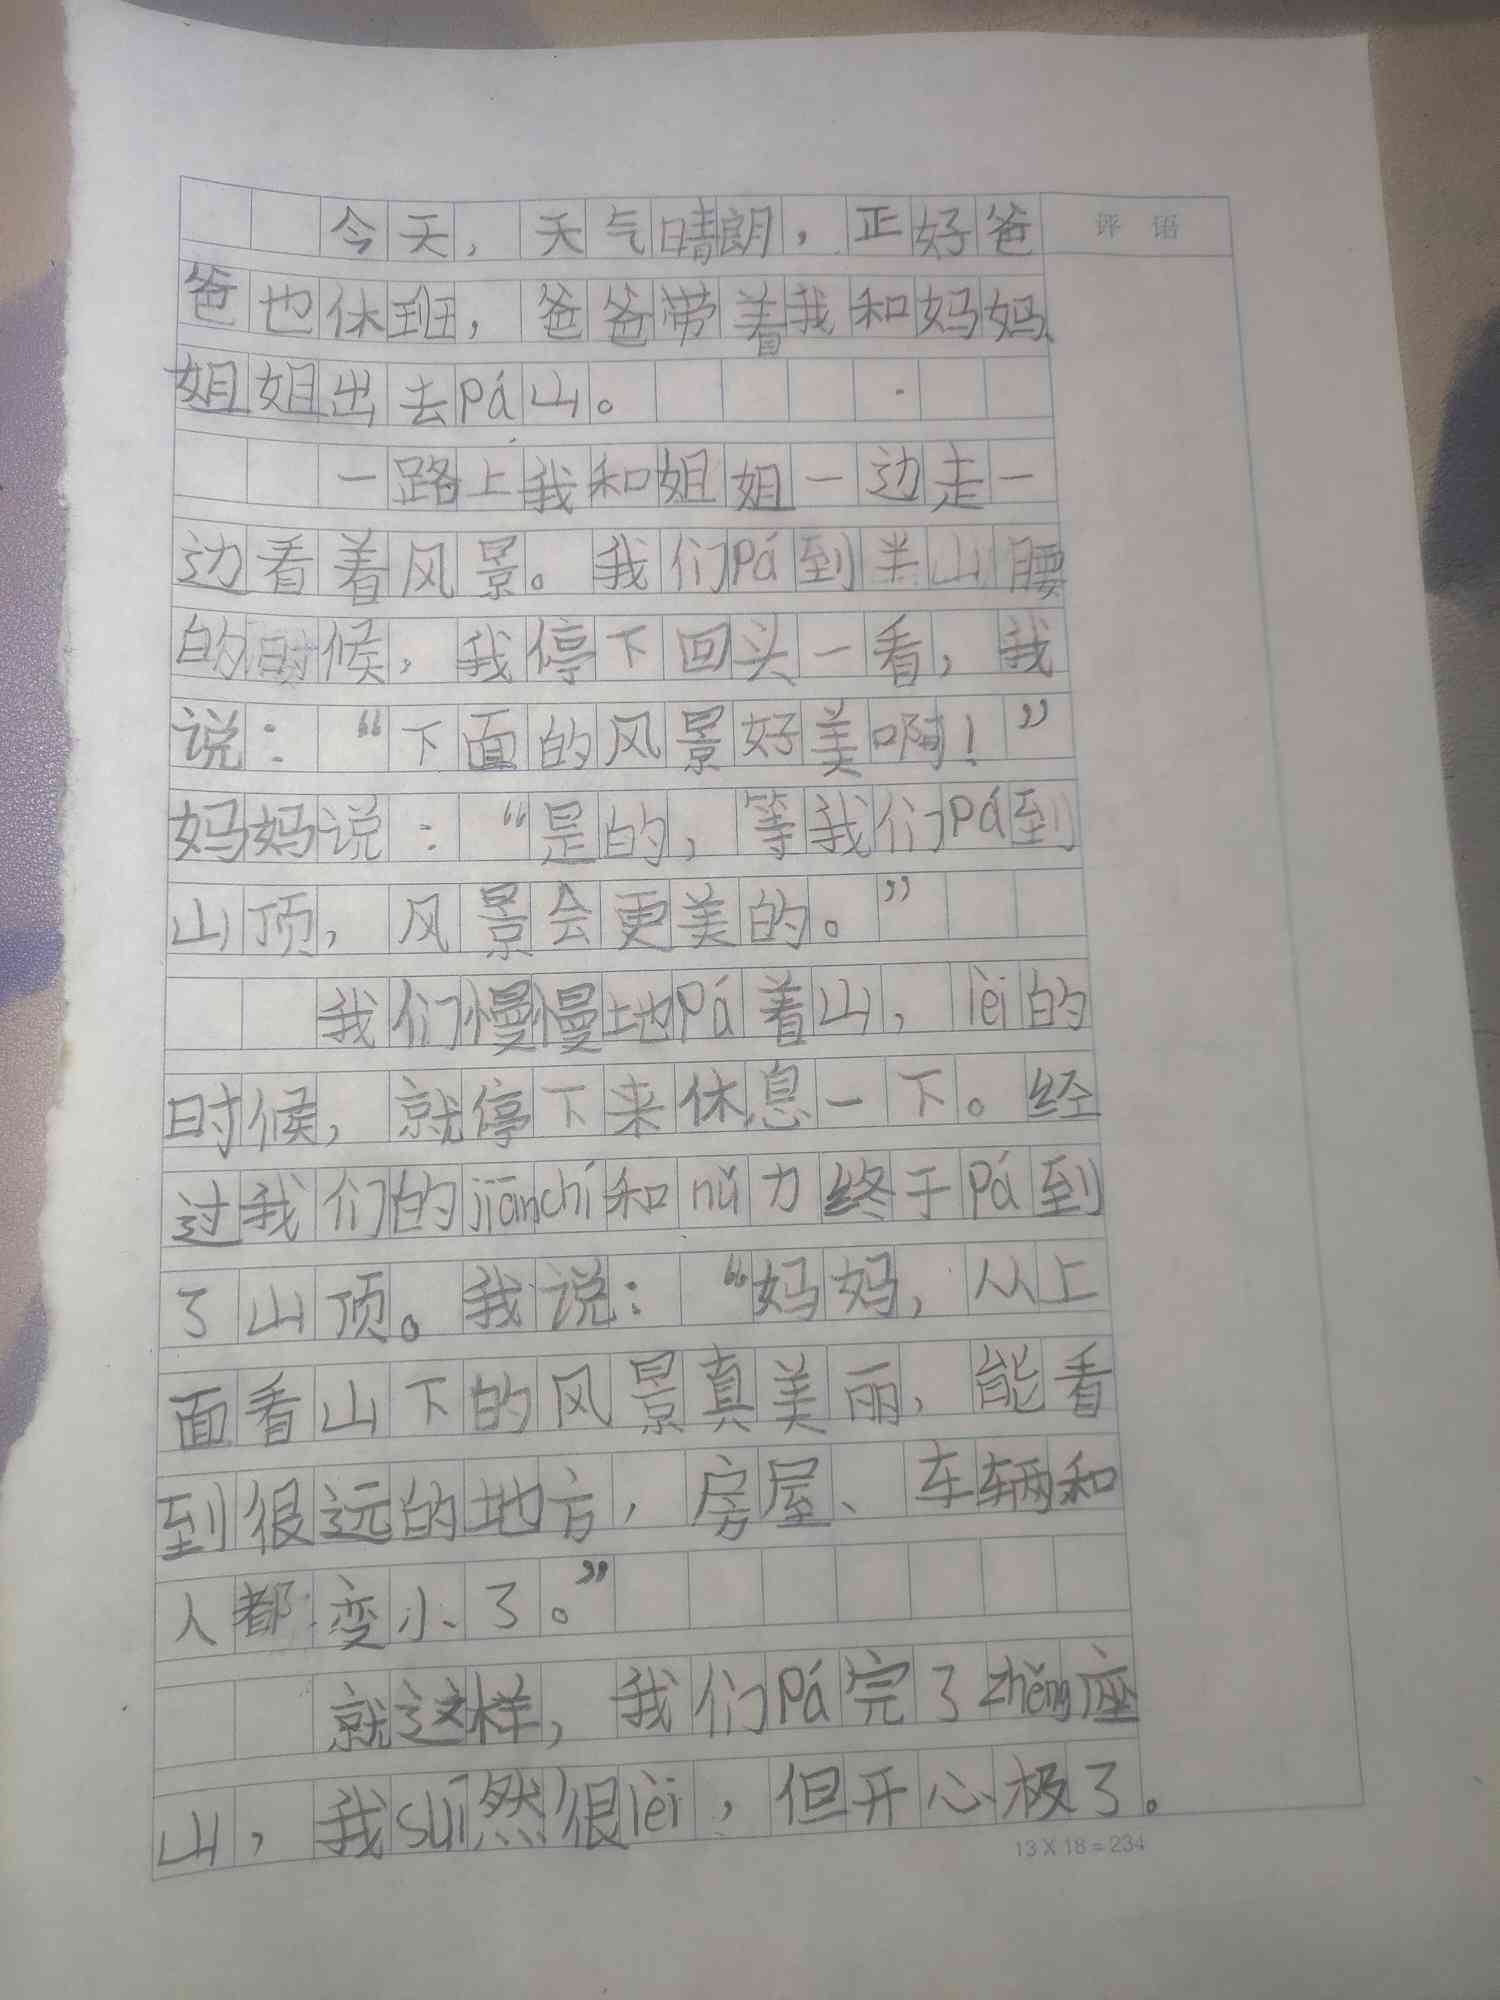 今天，天气晴朗，正好爸
评语
爸也休班，爸爸带着我和妈妈、
姐姐出去pá山。
一路上我和姐姐一边走一
边看着风景。我们pá到半山腰
的时候，我停下回头一看，我
说：“下面的风景好美啊！”
妈妈说：“是的，等我们pá到
山顶，风景会更美的。”
我们慢慢地pá着山，lèi的
时候，就停下来休息一下。经
过我们的jiānchí和nǔ力终于pá到
了山顶。我说：“妈妈，从上
面看山下的风景真美丽，能看
到很远的地方，房屋、车辆和
人都变小了。”
就这样，我们pá完了zhěng座
山，我suī然很lèi，但开心极了。
13×18=234